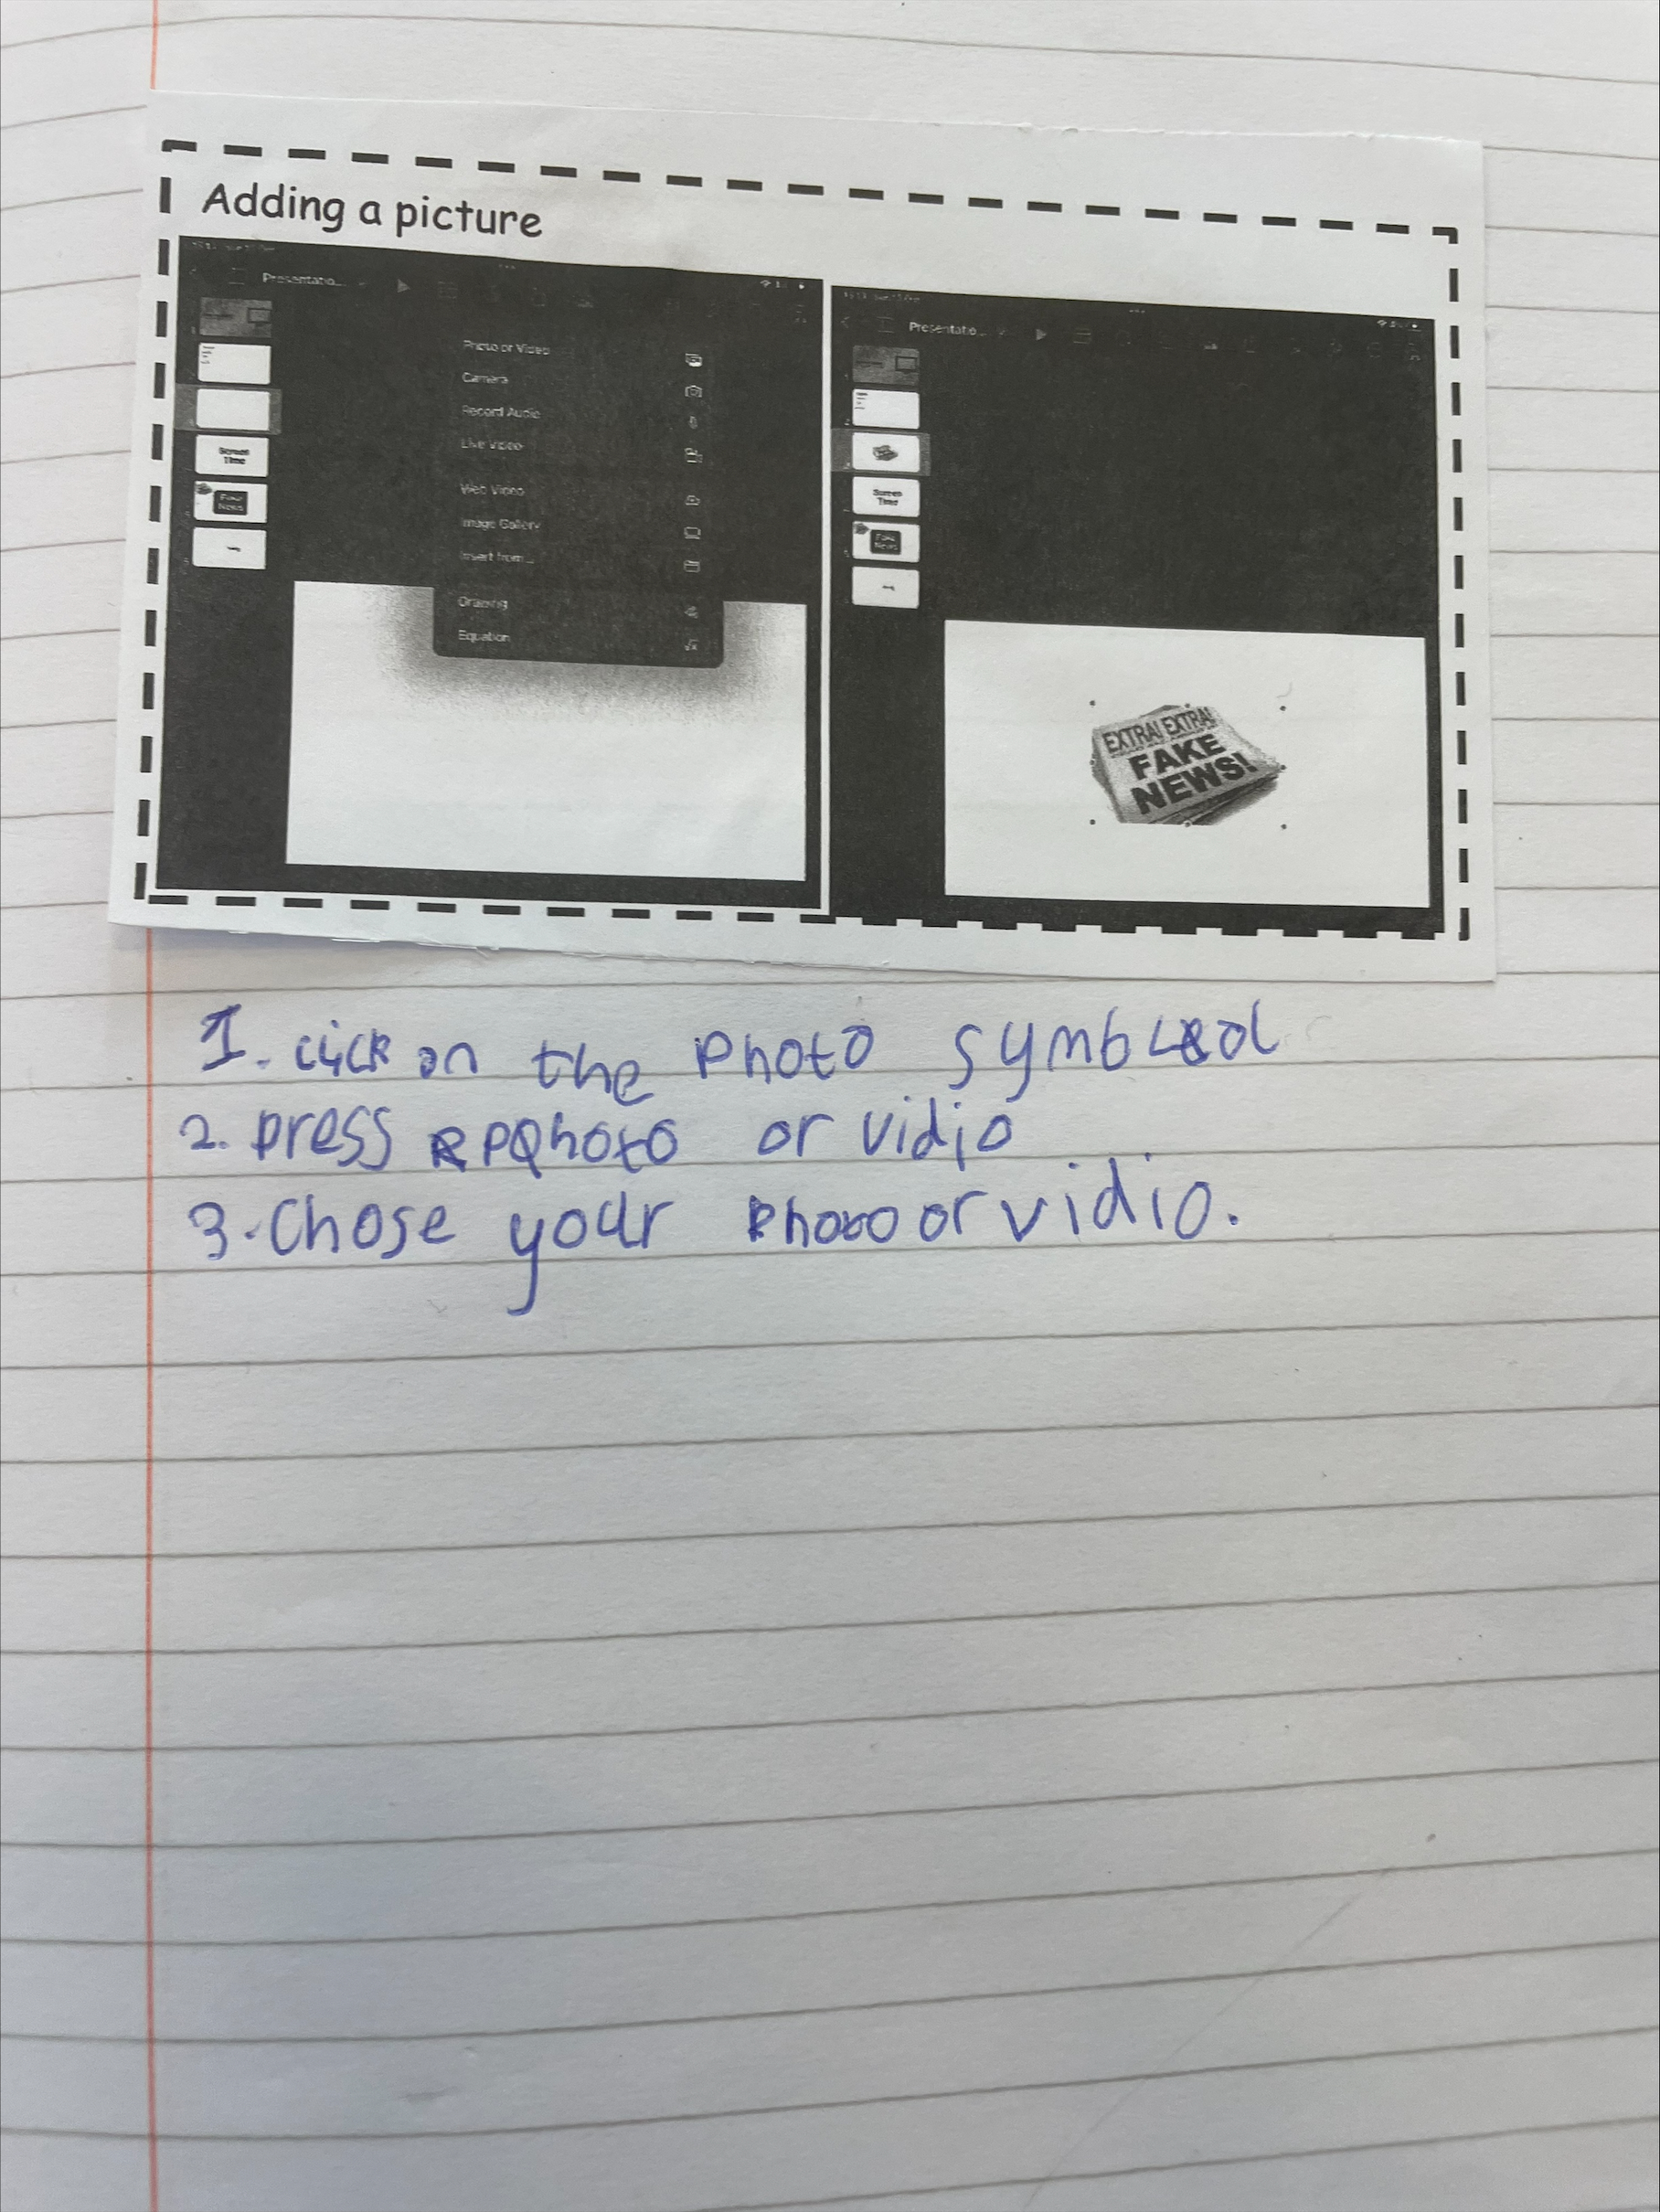 Adding a picture
Presentatio...
Photo or Video
Camera
Record Audio
Live Video
Web Video
Image Gallery
Insert from...
Drawing
Equation
Screen
Time
Fake
News
Presentatio...
Screen
Time
Fake
News
EXTRA! EXTRA!
FAKE
NEWS!
1. click on the Photo symbol
2. press photo or vidio
3. Chose your Photo or vidio.